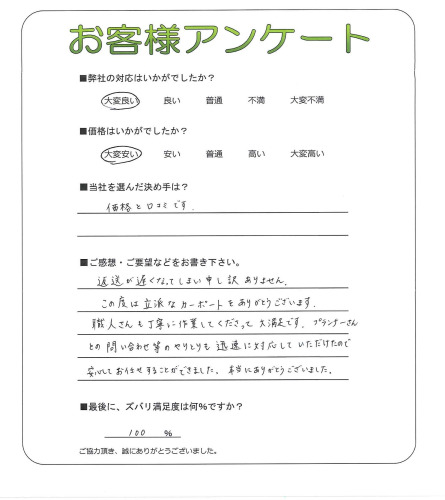 お客様アンケート
■弊社の対応はいかがでしたか?
大変良い 良い 普通 不満 大変不満
■価格はいかがでしたか?
大変安い 安い 普通 高い 大変高い
■当社を選んだ決め手は?
価格と口コミです.
■ご感想・ご要望などをお書き下さい。
返送が遅くなってしまい申し訳ありません.
この度は立派なカーポートをありがとうございます.
職人さんも丁寧に作業してくださって大満足です. プランナーさん
との問い合わせ等のやりとりも迅速に対応していただけたので
安心してお任せすることができました. 本当にありがとうございました.
■最後に、ズバリ満足度は何%ですか?
100 %
ご協力頂き、誠にありがとうございました。